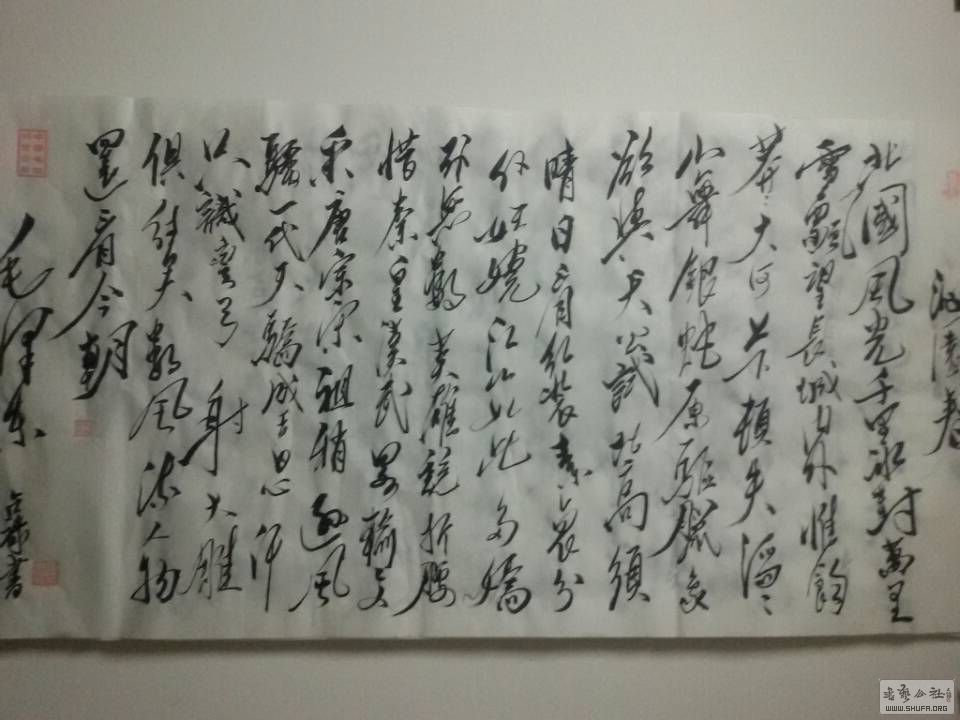 沁園春
北國風光千里冰封萬里
雪飄望長城內外惟餘
莽莽大河上下頓失滔滔
山舞銀蛇原驅蠟象
欲與天公試比高須
晴日看紅裝素裹分
外妖嬈江山如此多嬌
引無數英雄競折腰
惜秦皇漢武略輸文
采唐宗宋祖稍遜風
騷一代天驕成吉思汗
只識彎弓射大雕
俱往矣數風流人物
還看今朝
毛澤東
書
WWW.SHUFA.ORG